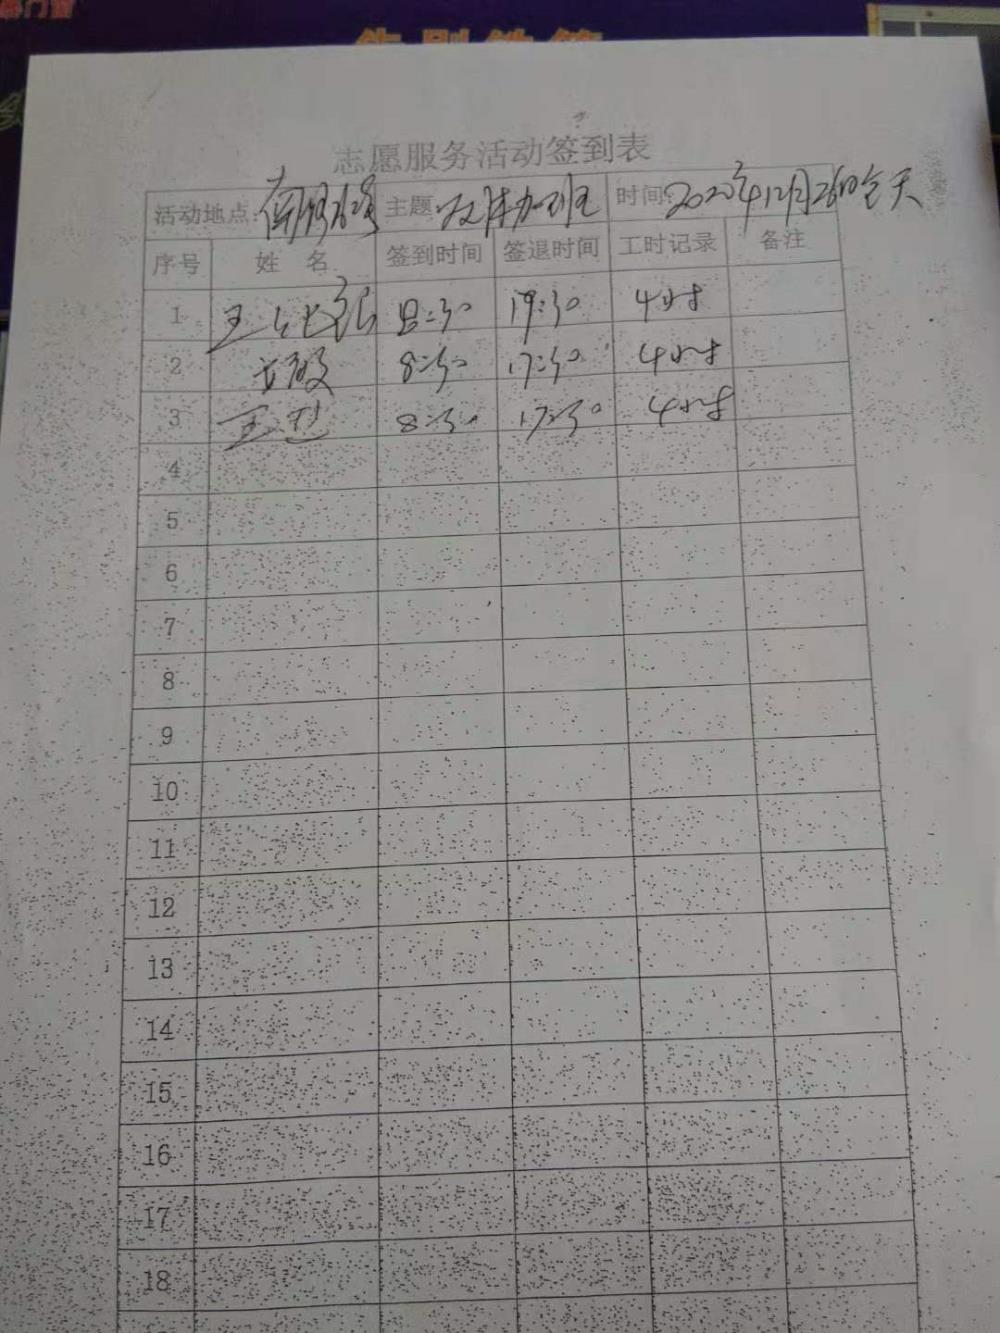 志愿服务活动签到表
活动地点: 主题: 时间: 2020年12月26日全天
序号 姓 名 签到时间 签退时间 工时记录 备注
1 8:30 17:30 4小时
2 8:30 17:30 4小时
3 8:30 17:30 4小时
4
5
6
7
8
9
10
11
12
13
14
15
16
17
18